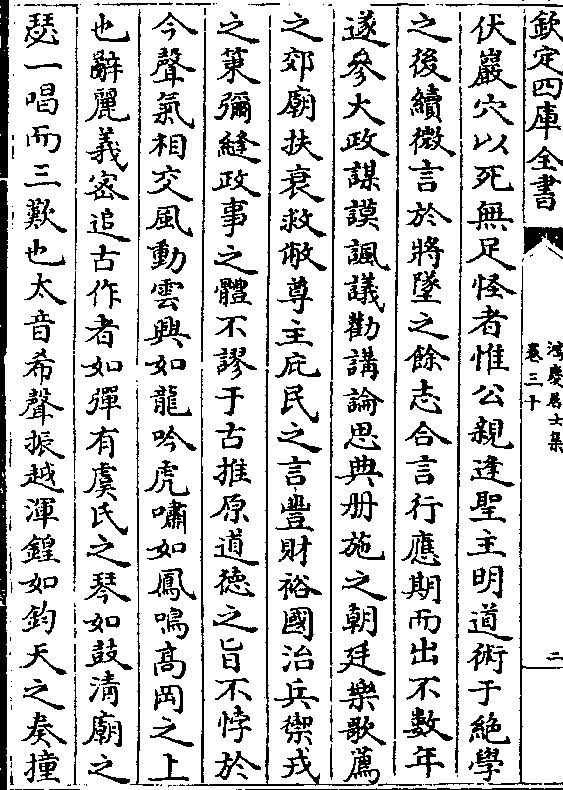 欽定四庫全書
鴻慶居士集
卷三十
二
伏巖穴以死無足怪者惟公親逢聖主明道術于絶學
之後續微言於將墜之餘志合言行應期而出不數年
遂參大政謀謨諷議勸講論思典册施之朝廷樂歌薦
之郊廟扶衰救敝尊主庇民之言豐財裕國治兵禦戎
之策彌縫政事之體不謬于古推原道德之旨不悖於
今聲氣相交風動雲興如龍吟虎嘯如鳳鳴髙岡之上
也辭麗義宻追古作者如彈有虞氏之琴如鼓清廟之
瑟一唱而三歎也太音希聲振越渾鍠如鈞天之奏撞